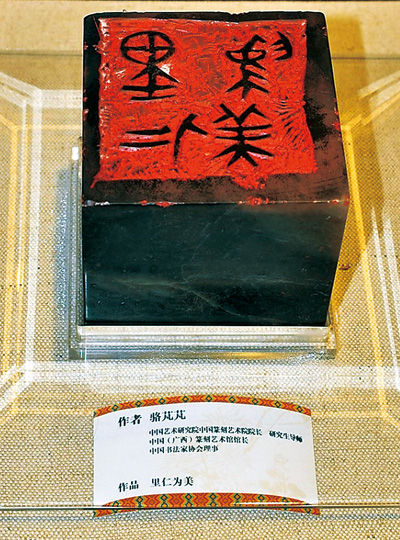 里仁
為美
作者 骆芃芃
中国艺术研究院中国篆刻艺术院院长 研究生导师
中国（广西）篆刻艺术馆馆长
中国书法家协会理事
作品 里仁为美